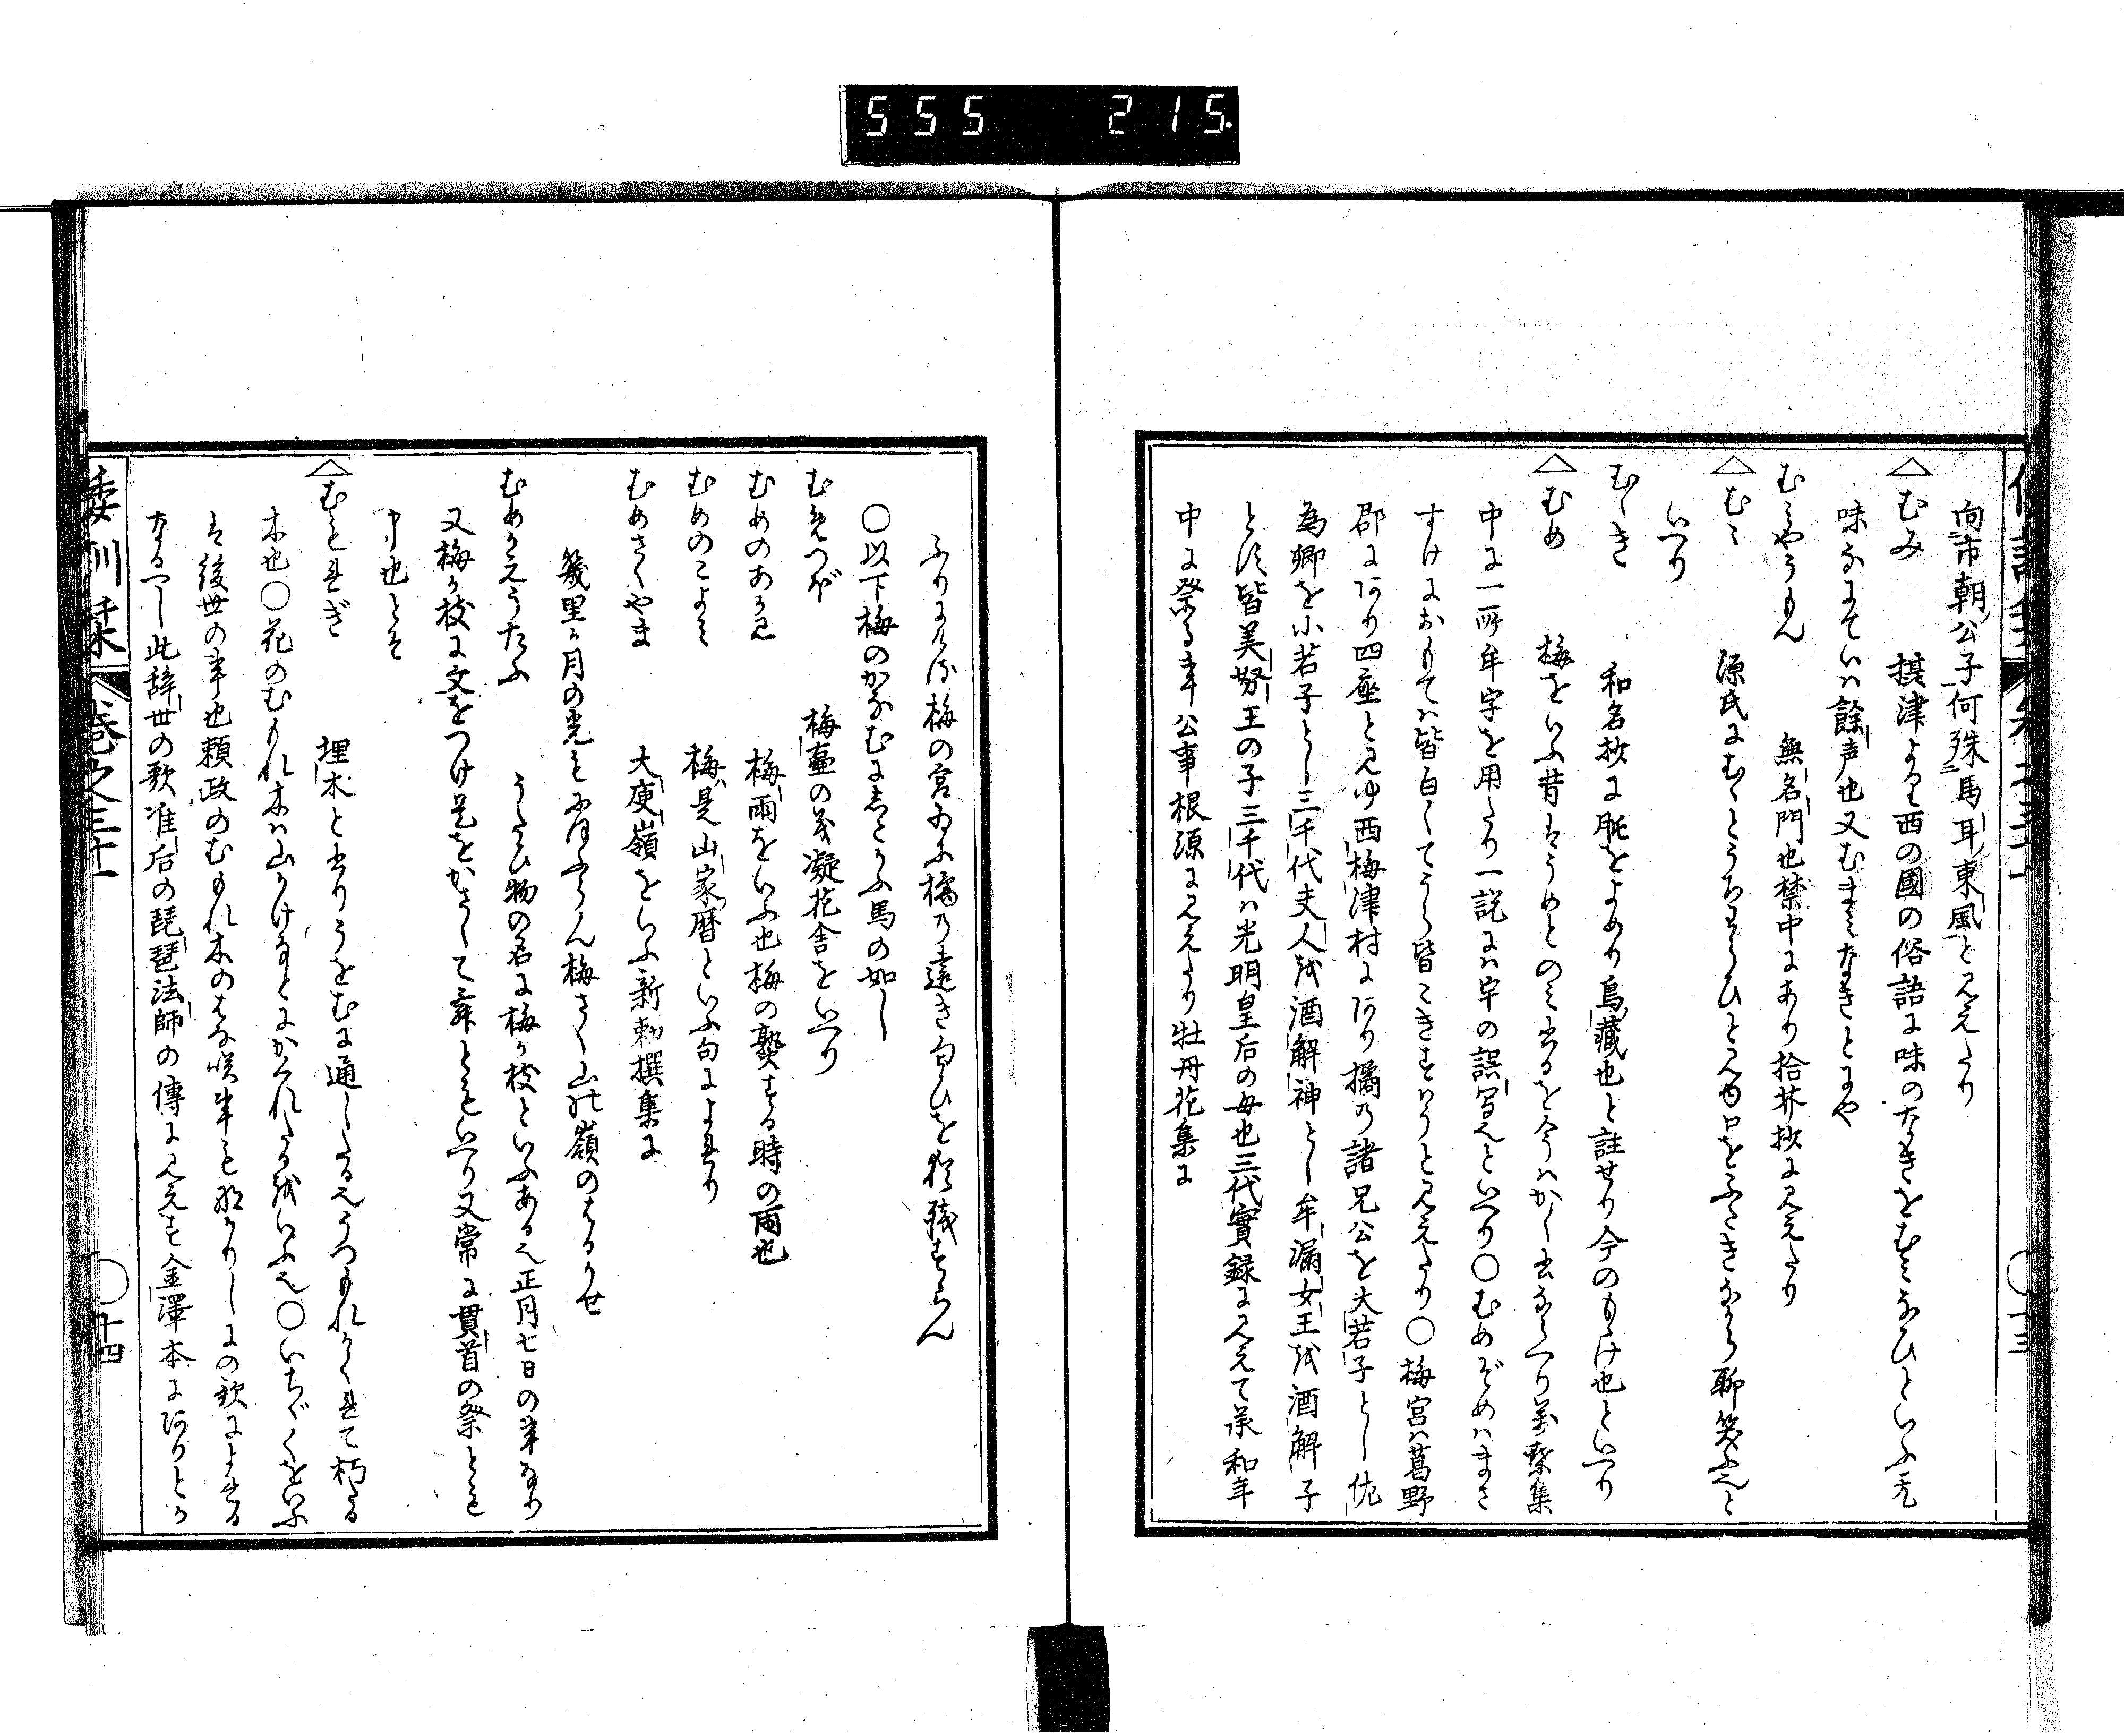 555 215.
向市朝公子何殊馬耳東風と見えたり
△むみ 摂津より西の國の俗語に味のなきをむみなひといふ无
味なまていハ餘声也又むまみなきとにや
むミやうもん 無名門也禁中にあり拾芥抄に見えたり
△むゝ 源氏にむゝとうちわらひと見ゆ口をふさきなから聊笑ふ也と
いへり
むゝき 和名抄に䏶をよめり鳥藏也と註せり今のもゝけ也といへり
△むめ 梅をいふ昔はうめとのミ出るを今ハかく書ならへり万葉集
中に一所牟字を用たり一説にハ宇の誤写也といへり○むめぞめハまさ
すけにおもてハ皆白くてうら皆こきすはうと見えたり○梅宮ハ葛野
郡にあり四座と見ゆ西梅津村にあり橘乃諸兄公を大若子とし佐
為卿を小若子とし三千代夫人を酒解神とし牟漏女王を酒解子
とす皆美努王の子三千代ハ光明皇后の母也三代實録に見えて承和年
中に祭る事公事根源に見えたり牡丹花集に
ふりにける梅の宮ゐに橘乃遠き匂ひを猶残すらん
○以下梅のかなむにしたかふ馬の如し
むめつぼ 梅壷の義凝花舎をいへり
むめのあめ 梅雨をいふ也梅の熟する時の雨也
むめのこよミ 梅是山家暦といふ句によれり
むめさくやま 大庾嶺をいふ新勅撰集に
幾里か月の光もにほふらん梅さく山の嶺のはるかせ
むめかえうたふ うたひ物の名に梅か枝といふある也正月七日の事なり
又梅か枝に文をつけ是をかさして舞ともいへり又常に貫首の祭とも
申也とそ
△むもれぎ 埋木と書りうをむに通したる也うつもれかくれて朽たる
木也○花のむもれ木ハ山かけなとにかくれたるをいふ也○いちぢくをいふ
は後世の事也頼政のむもれ木のはな咲事も那かりしにの歌によれる
なるへし此辞世の歌准后の琵琶法師の傳に見えす金澤本にありとか
倭訓栞 巻之三十一 ○十四